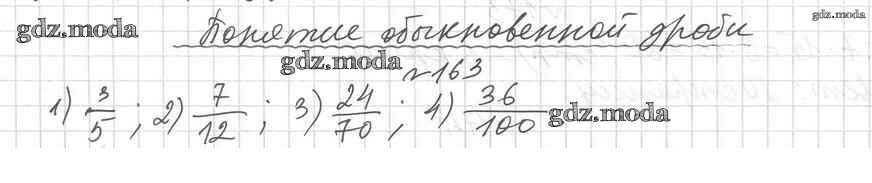 gdz.moda
gdz.moda Понятие обыкновенной дроби
gdz.moda №163
1) 3/5 ; 2) 7/12 ; 3) 24/70 ; 4) 36/100 gdz.moda